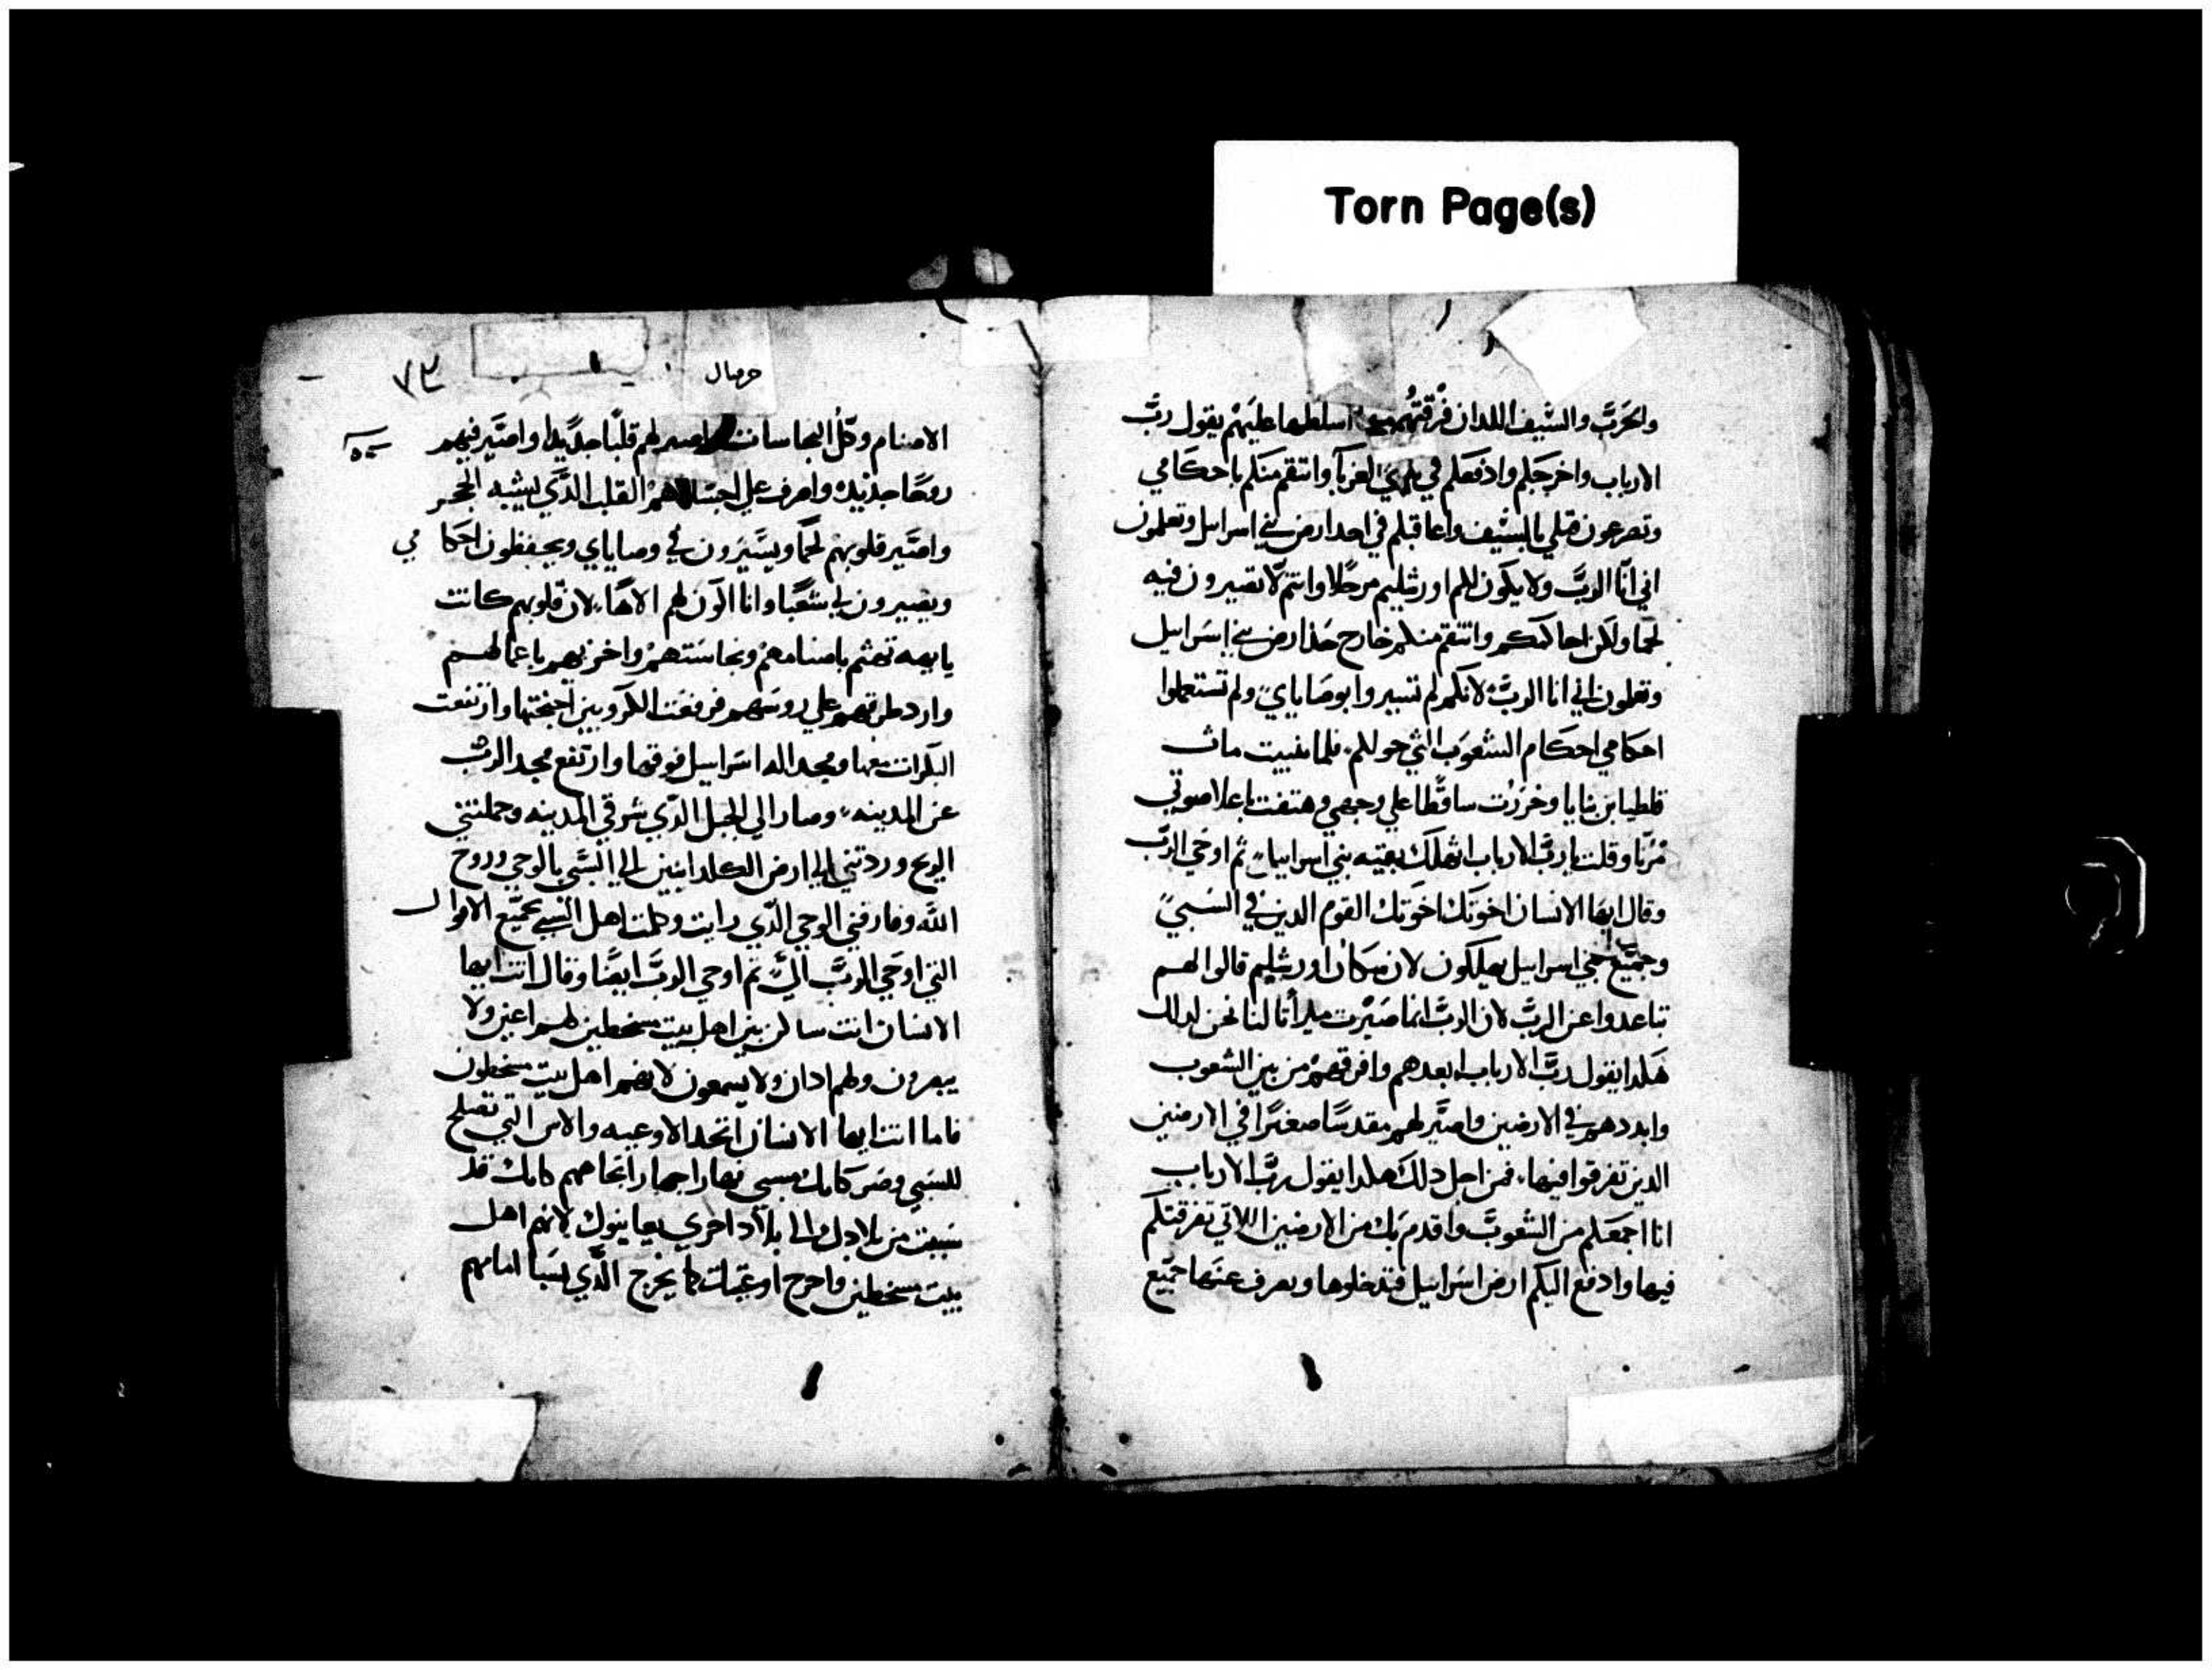 Torn Page(s)
والحرب والسيف اللدان فرقتهم اسلطهما عليهم يقول رب
الارباب واخرجكم وادفعكم في يدي الغربا وانتقم منكم باحكامي
وتصرعون قتلي بالسيف واعاقبكم في احد ارض بني اسراييل وتعلمون
اني انا الرب ولا يكون لكم اورشليم مرجلا وانتم لا تصيرون فيه
لحما ولكن احاكمكم وانتقم منكم خارج حد ارض بني اسراييل
وتعلمون اني انا الرب لانكم لم تسيروا بوصاياي ولم تستعملوا
احكامي احكام الشعوب التي حولكم فلما تنبيت مات
فلطيا بن بنايا وخررت ساقطا علي وجهي وهتفت باعلا صوتي
وقلت يارب الارباب اتهلك بقيه بني اسراييل ثم اوحي الرب
وقال ايها الانسان اخوتك اخوتك القوم الدين في السبي
وجميع بني اسراييل يهلكون لان سكان اورشليم قالوا لهم
تباعدوا عن الرب لان الرب انما صيرت ميراثا لنا نحن لدلك
هكدا يقول رب الارباب ابعدهم وافرقهم من بين الشعوب
وابددهم في الارضين واصير لهم مقدسا صغيرا في الارضين
الدين تفرقوا فيها فمن اجل دلك هكدا يقول رب الارباب
انا اجمعكم من الشعوب واقدم بك من الارضين اللاتي تفرقتكم
فيها وادفع اليكم ارض اسراييل فتدخلوها ويصرف عنها جميع
حزقيال
٧٣
الاصنام وكل النجاسات واصير لهم قلبا جديدا واصير فيهم
روحا جديده واصرف عن اجسادهم القلب الدي يشبه الحجر
واصير قلوبهم لحما ويسيرون في وصاياي ويحفظون احكامي
ويصيرون لي شعبا وانا اكون لهم الاها لان قلوبهم كانت
باصنامهم ونجاستهم واخزيهم باعمالهم
وارد طرقهم علي روسهم فرفعت الكروبين اجنحتها وارتفعت
البكرات معها ومجد اله اسراييل فوقها وارتفع مجد الرب
عن المدينه وصار الي الجبل الدي شرقي المدينه وحملتني
الروح وردتني الي ارض الكلدانيين الي السبي بالوحي وروح
الله وفارقني الوحي الدي رايت وكلمت اهل السبي بجميع الاقوال
التي اوحي الرب الي ثم اوحي الرب ايضا وقال انت ايها
الانسان انت ساكن بين اهل بيت مسخطين لهم اعين ولا
يبصرون ولهم ادان ولا يسمعون لانهم اهل بيت مسخطون
فاما انت ايها الانسان اتخد الاوعيه والاس التي تصلح
للسبي وصر كانك مسبي نهارا جهارا تجاههم كانك قد
سبيت من بلادك الي بلاد اخري يعاينوك لانهم اهل
بيت مسخطين واخرج اوعيتك كما يخرج الدي يسبا امامهم